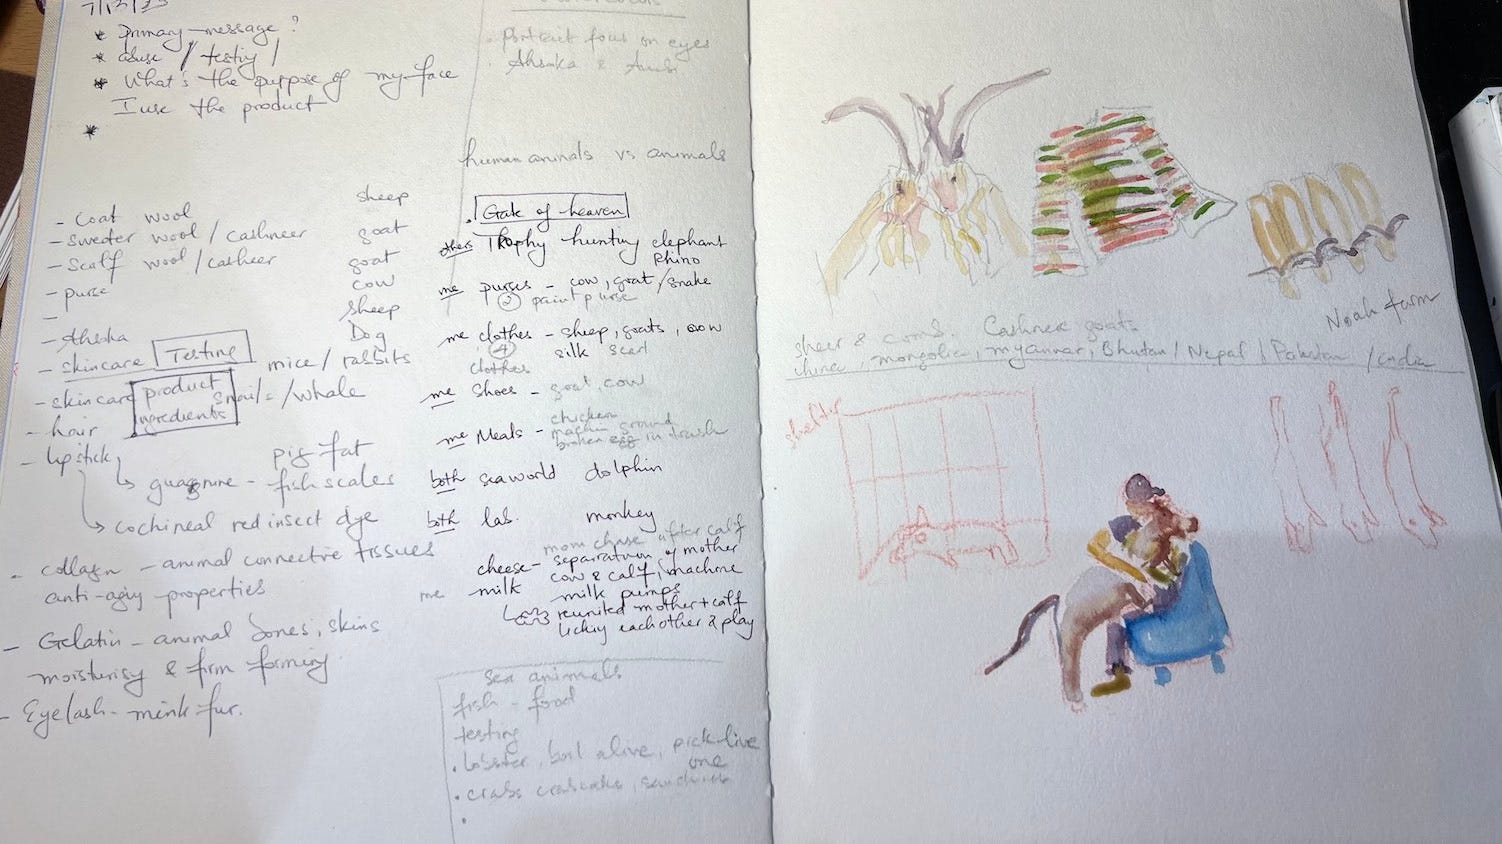 7/12/23
* Primary message?
* abuse / testing /
* What's the purpose of my face
I use the product
*
- Coat wool sheep
- sweater wool / cashmeer goat
- Scalf wool / casheer goat
- purse cow
- sheep
- Ahsoka Dog
- skincare Testing mice / rabbits
- skincare product ingredients snails / whale
- hair
- lipstick pig fat
↳ guagnine - fish scales
↳ cochineal red insect dye
- collagn - animal connective tissues
anti-aging properties
- Gelatin - animal bones, skins
moisturisy & firm forming
- Eyelash - mink fur.
. Portrait focus on eyes
. Ahsoka &
human animals vs animals
. Gate of heaven
others Trophy hunting elephant
Rhino
me purses - cow, goat / snake
② paint purse
me clothes - sheep, goats, cow
④ silk
clothes
me Shoes - goat, cow
me Meals - chicken
ground
broken egg in trash
both seaworld dolphin
both lab. monkey
mom chase after calf
cheese - separation of mother
me milk cow & calf, machine
milk pumps
↳ reunited mother + calf
licking each other & play
sea animals
fish - food
testing
. Lobster, boil alive, pick live
one
. crabs crabcake, sandwich
.
sheer & comb. Cashmer goats
china, mongolia, myanmar, Bhutan / Nepal / Pakistan / india
Noah farm
shelter